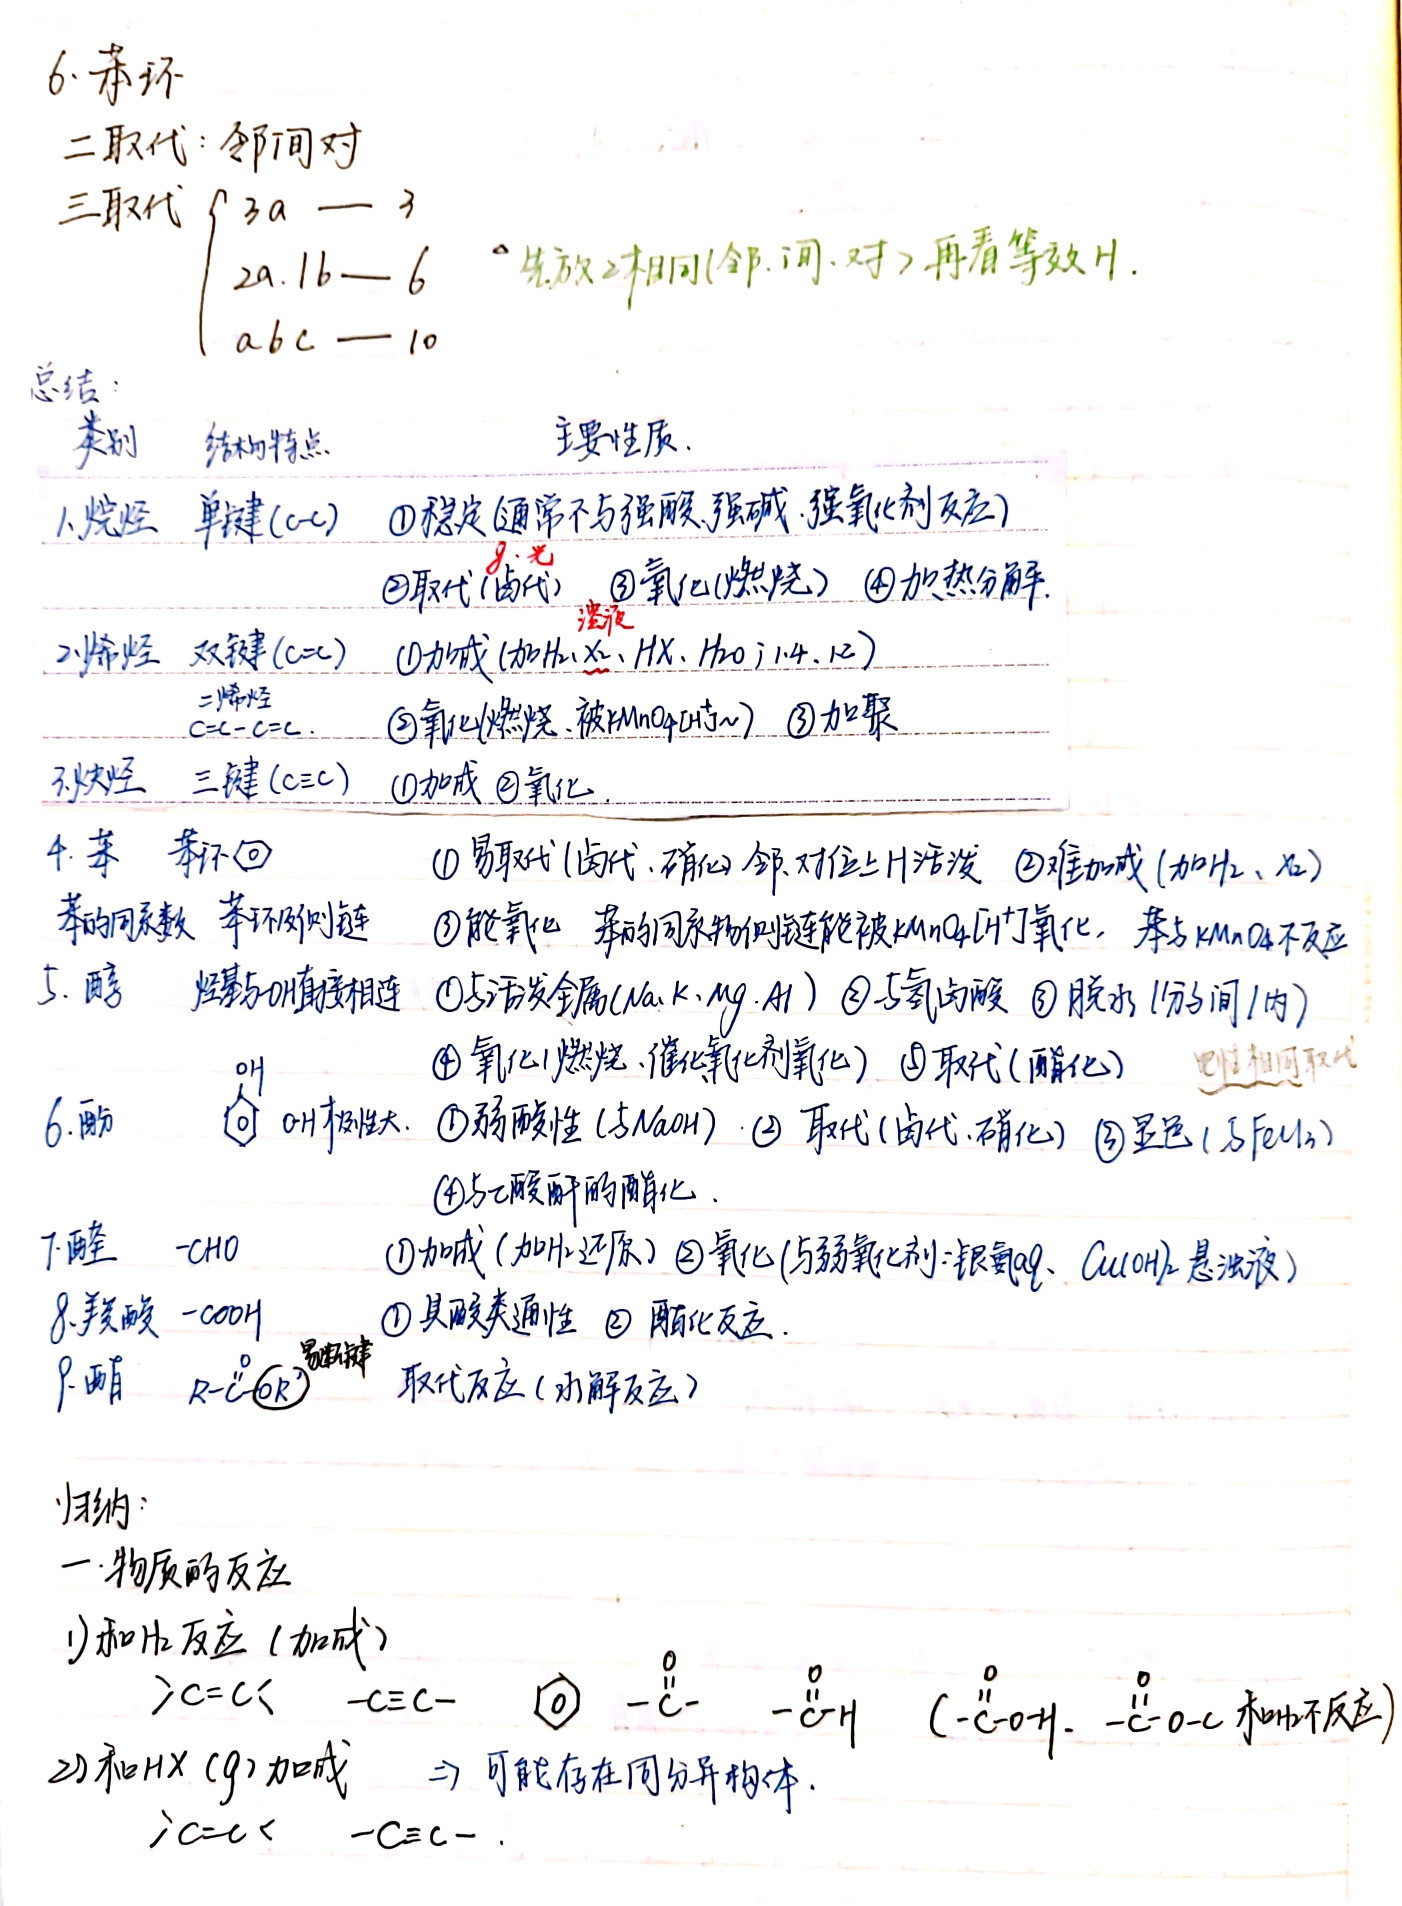 6. 苯环
二取代：邻间对
三取代 { 3a — 3
2a.1b — 6
abc — 10
△先放2相同(邻.间.对)再看等效H.
总结：
类别 结构特点 主要性质.
1.烷烃 单键(C-C) ①稳定(通常不与强酸、强碱、强氧化剂反应)
g.光
②取代(卤代) ③氧化(燃烧) ④加热分解.
溶液
2.烯烃 双键(C=C) ①加成(加H₂、X₂、HX、H₂O；1.4、1.2)
二烯烃
C=C-C=C. ②氧化(燃烧、被KMnO₄[H⁺]~) ③加聚
3.炔烃 三键(C≡C) ①加成 ②氧化.
4. 苯 苯环 ①易取代(卤代、硝化)邻.对位上H活泼 ②难加成(加H₂、X₂)
苯的同系数 苯环及侧链 ③能氧化 苯的同系物侧链能被KMnO₄[H⁺]氧化，苯与KMnO₄不反应
5. 醇 烃基与-OH直接相连 ①与活泼金属(Na.K.Mg.Al) ②与氢卤酸 ③脱水(分子间/内)
④氧化(燃烧、催化氧化剂氧化) ⑤取代(酯化)
相同取代
OH
6.酚 O-H极性大. ①弱酸性(与NaOH) ②取代(卤代.硝化) ③显色(与FeCl₃)
④与乙酸酐的酯化.
7.醛 -CHO ①加成(加H₂还原) ②氧化(与弱氧化剂：银氨aq、Cu(OH)₂悬浊液)
8.羧酸 -COOH ①具酸类通性 ②酯化反应.
9.酯 R-C(=O)-OR' 易断键 取代反应(水解反应)
归纳：
一.物质的反应
1)和H₂反应(加成)
>C=C< -C≡C- -C(=O)- -C(=O)-H (-C(=O)-O-H. -C(=O)-O-C 和H₂不反应)
2)和HX(g)加成 ⇒可能存在同分异构体.
>C=C< -C≡C- .